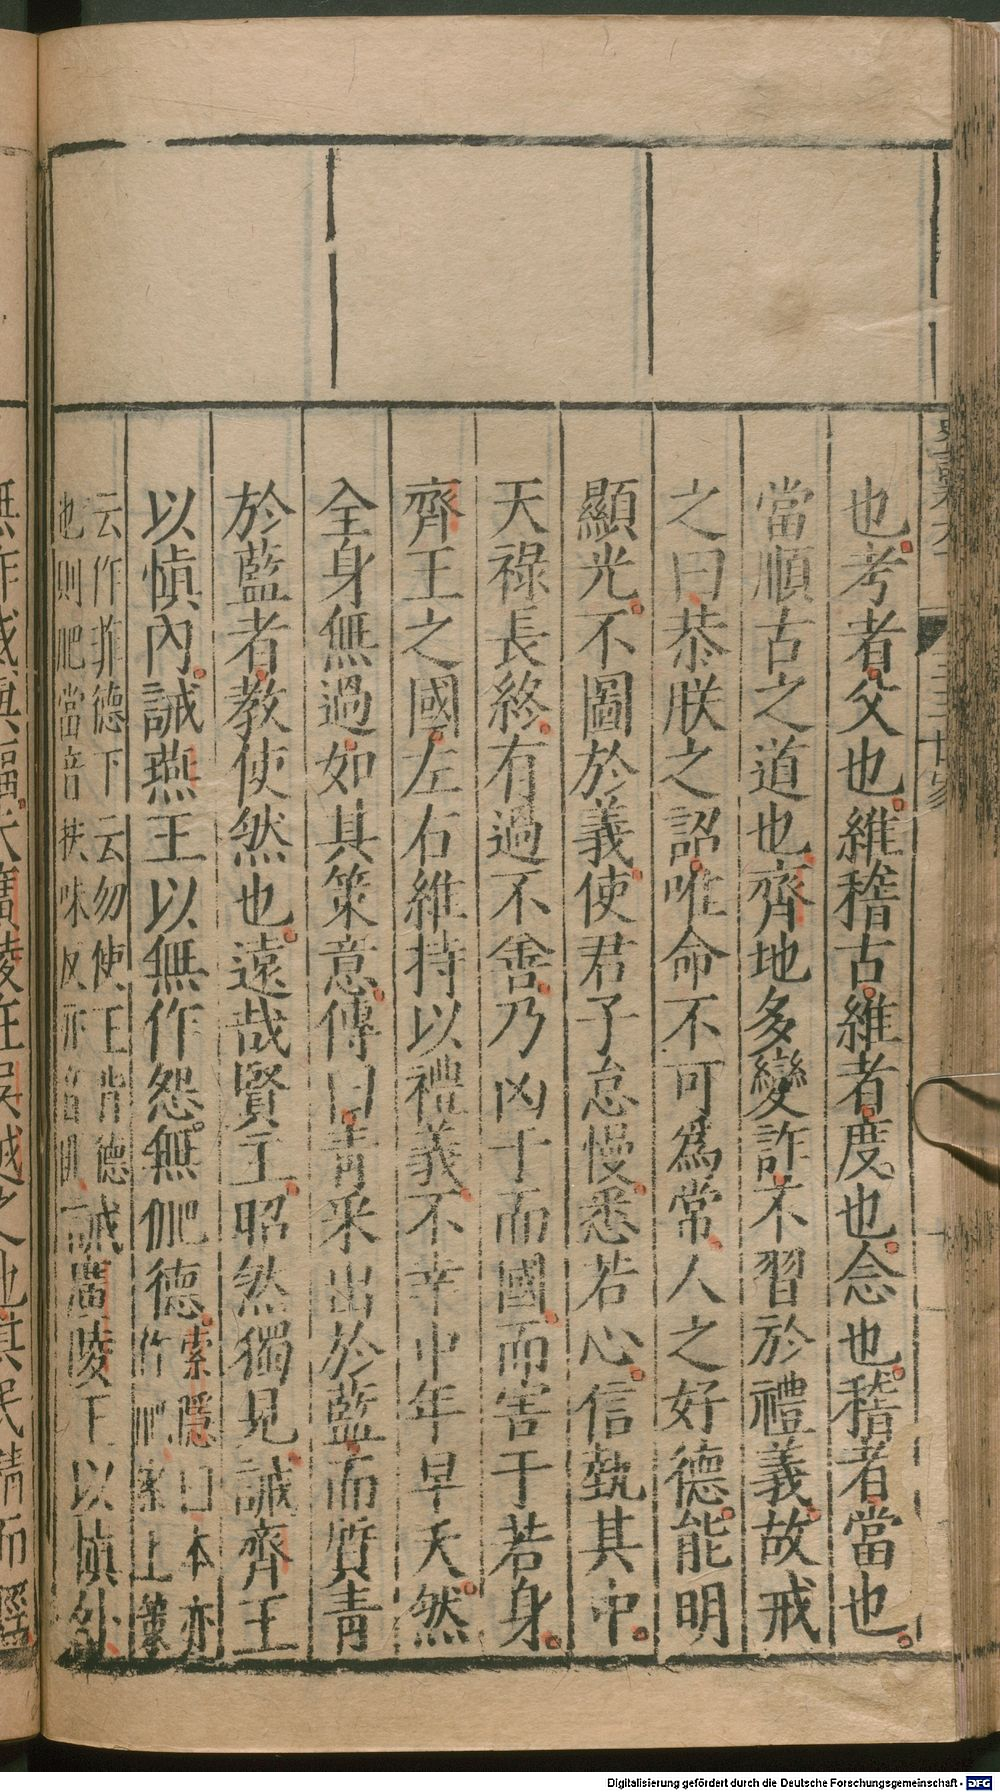 也考者父也維稽古維者度也念也稽者當也
當順古之道也齊地多變詐不習於禮義故戒
之曰恭朕之詔唯命不可為常人之好德能明
顯光不圖於義使君子怠慢悉若心信執其中
天祿長終有過不善乃凶于而國而害于若身
齊王之國左右維持以禮義不幸中年早夭然
全身無過如其策意傳曰青采出於藍而質青
於藍者教使然也遠哉賢主昭然獨見誡齊王
以慎內誡燕王以無作怨無俷德索隱曰本亦
作肥案上策
云作菲德下云勿使王背德
也則肥當音扶味反亦音
誡廣陵王以慎外
Digitalisierung gefördert durch die Deutsche Forschungsgemeinschaft - DFG